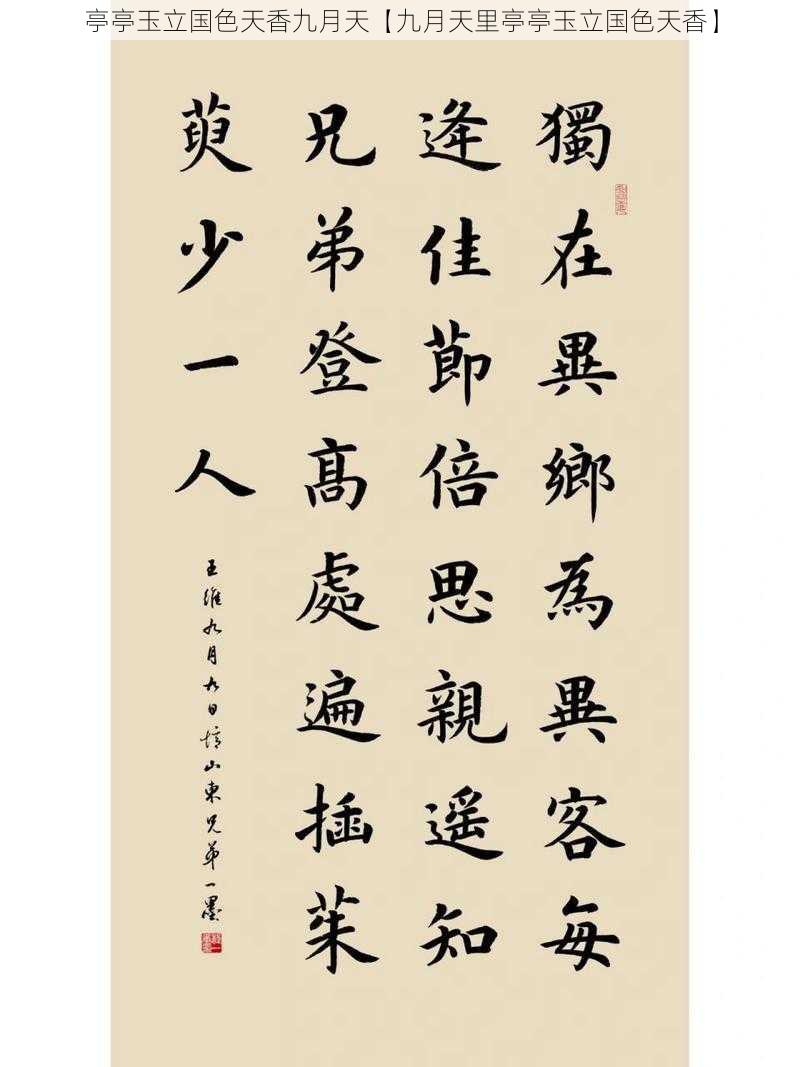 亭亭玉立国色天香九月天【九月天里亭亭玉立国色天香】
獨在異鄉為異客每
逢佳節倍思親遥知
兄弟登高處遍插茱
萸少一人
王維九月九日憶山東兄弟一墨